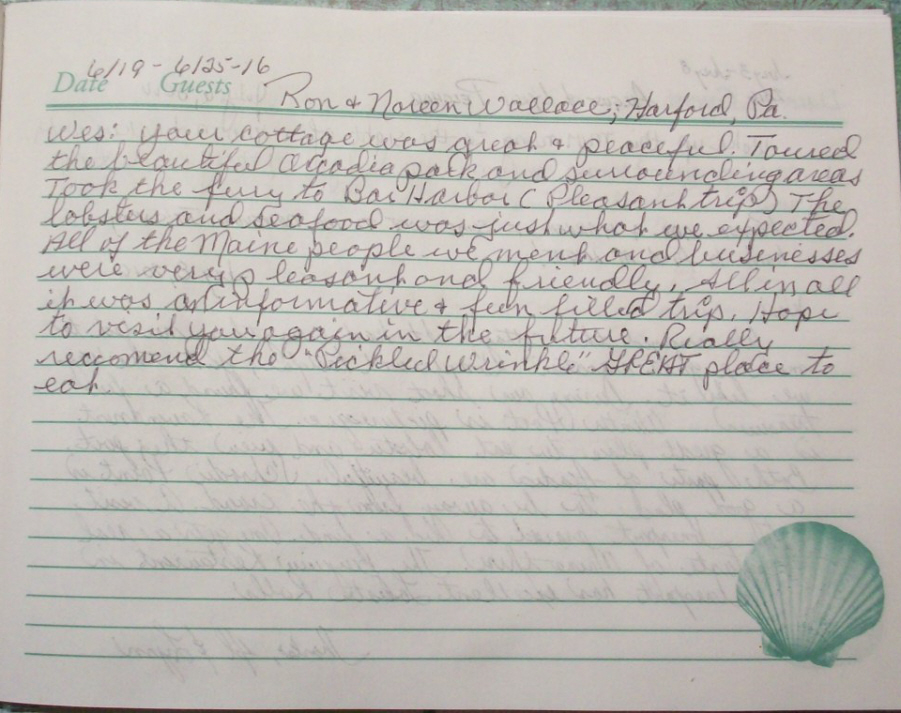 6/19 - 6/25-16
Date Guests
Ron & Noreen Wallace; Harford, Pa.
Wes: your cottage was great & peaceful. Toured
the beautiful Arcadia park and surrounding areas
Took the ferry to Bar Harbor (Pleasant trip) The
lobsters and seafood was just what we expected.
All of the Maine people we ment and businesses
were very pleasant and friendly. All in all
it was an informative & fun filled trip. Hope
to visit you again in the future. Really
reccomend the "Pickled Wrinkle" GREAT place to
eat